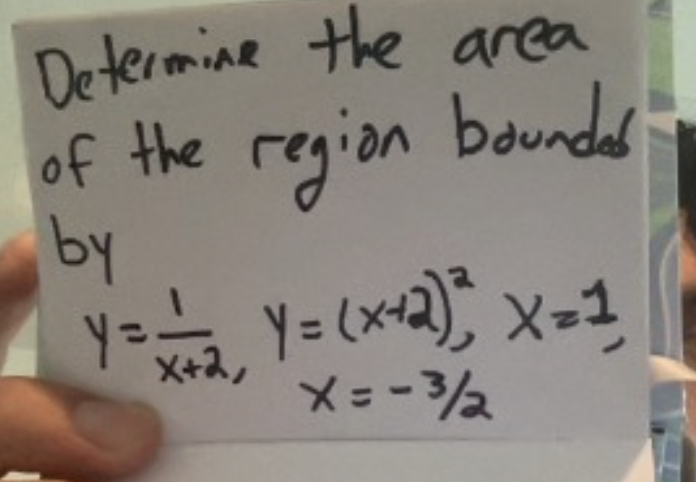 Determine the area
of the region bounded
by
y = 1/(x+2), y = (x+2)², x = 1,
x = -3/2